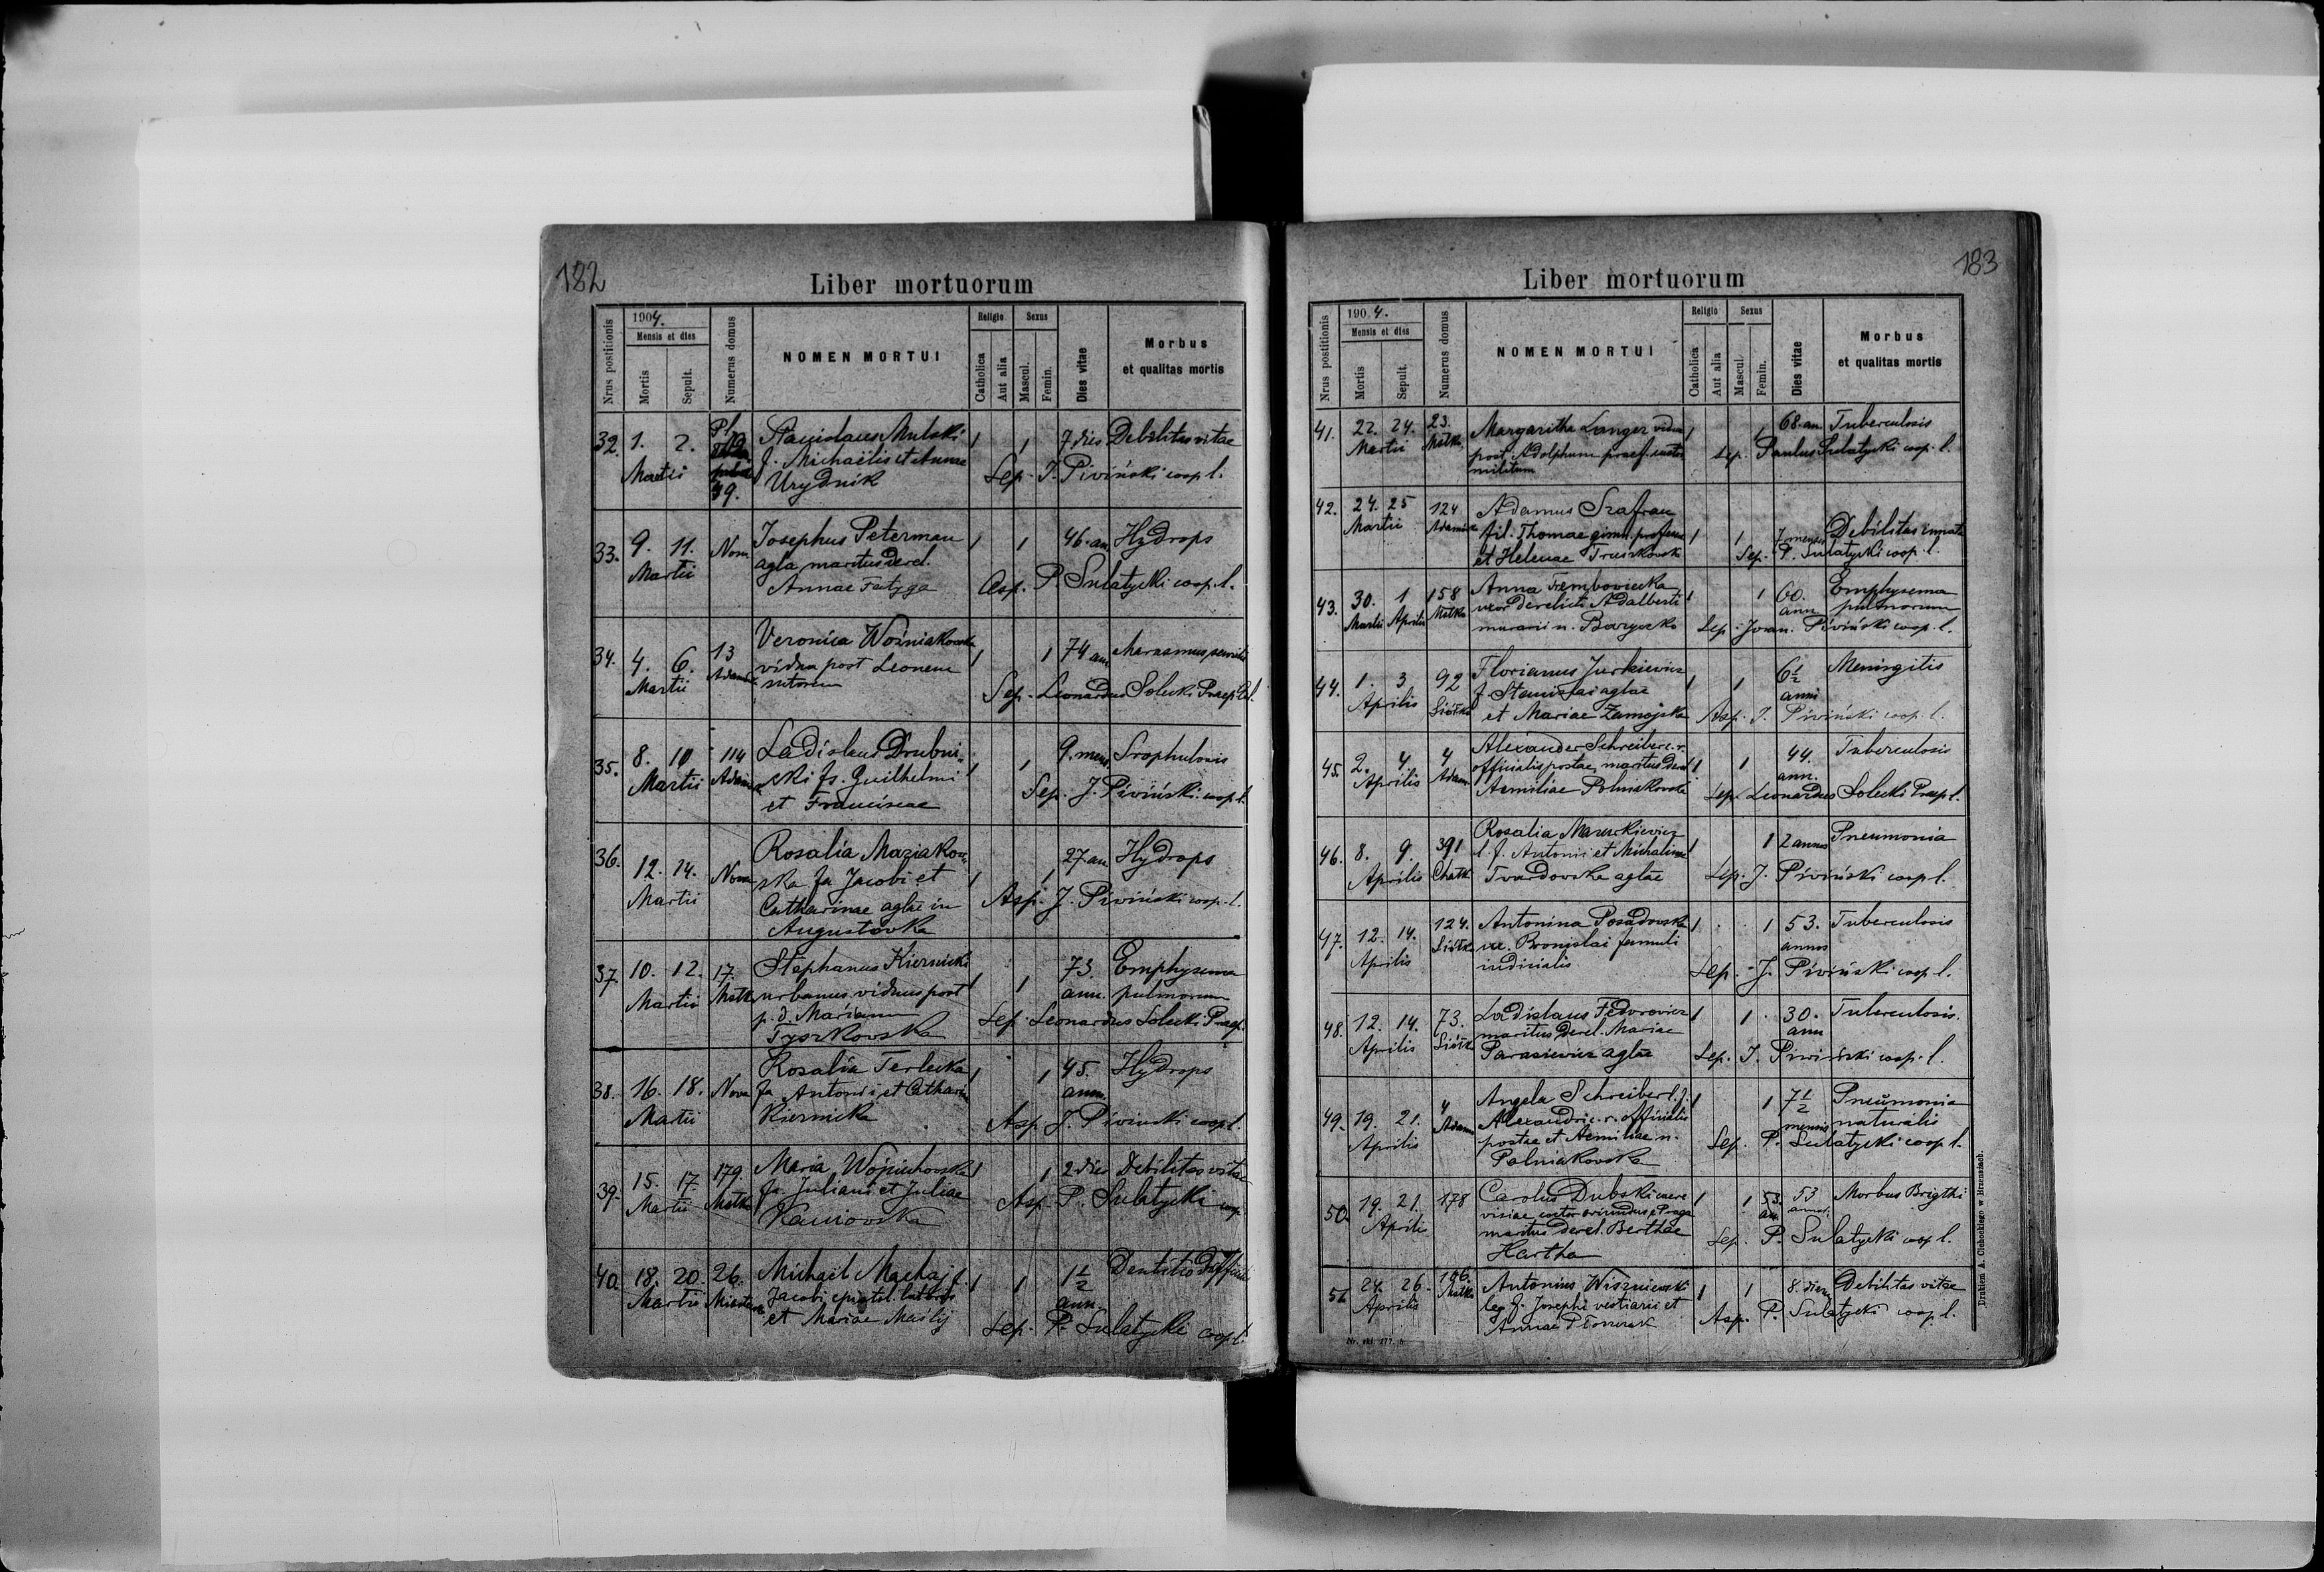 182
Liber mortuorum
Nrus postitionis
1904.
Mensis et dies
Mortis
Sepult.
Numerus domus
NOMEN MORTUI
Religio
Catholica
Aut alia
Sexus
Mascul.
Femin.
Dies vitae
Morbus
et qualitas mortis
32. 1. 2. Stanislaus Mulski 1 1 7 dies Debilitas vitae
Martii f. Michaëlis et Annae
39. Urydnik Sep. J. Piviński coop. l.
33. 9. 11. Nova Josephus Peterman 1 1 46. an. Hydrops
Martii agla maritus derel.
Annae Fatyga Asp. P. Sulatycki coop. l.
34. 4. 6. 13 Veronica Woźniakowska 1 1 74 ann Marasmus senilis
Martii vidua post Leonem
sutorem Sep. Leonardus Solecki Praep.
35. 8. 10 114 Ladislaus Drubni- 1 1 9. mens. Scrophulosis
Martii ski fs. Guilhelmi
et Franciscae Sep. J. Piviński coop. l.
36. 12. 14. Nova Rosalia Maziakow- 1 1 27 an. Hydrops
Martii ska fa Jacobi et
Catharinae aglae in Asp. J. Piviński coop. l.
Augustovka
37. 10. 12. 17. Stephanus Kiernicki 1 1 73. Emphysema
Martii Mstk urbanus viduus post ann. pulmorum
p. d. Mariam Sep. Leonardus Solecki Praep.
Tyszkovska
38. 16. 18. Nova Rosalia Terlecka 1 1 45. Hydrops
Martii fa Antonii et Cathari ann.
Kiernicka Asp. J. Pivinski coop. l.
39. 15. 17. 179. Maria 1 1 2 dies Debilitas vitae
Martii Mstka fa. Juliani et Juliae
Asp. P. Sulatycki coop.
40. 18. 20. 26. Michaël Machaj f. 1 1 1½ Dentitio difficilis
Martii Jacobi ann.
et Mariae Sep. P. Sulatycki coop. l.
183
Liber mortuorum
Nrus postitionis
1904.
Mensis et dies
Mortis
Sepult.
Numerus domus
NOMEN MORTUI
Religio
Catholica
Aut alia
Sexus
Mascul.
Femin.
Dies vitae
Morbus
et qualitas mortis
41. 22. 24. 23. Margaritha Langer vidua 1 1 68. an. Tuberculosis
Martii Mstk. post Adolphum praef.
militum Sep. Paulus Sulatycki coop. l.
42. 24. 25 124 Adamus Szafran
Martii fil. Thomae gimn. profesor 1 1 7 menses Debilitas innata
et Helenae Truszkovsk Sep. P. Sulatycki coop. l.
43. 30. 1 158 Anna Trembovecka 1 1 60. Emphysema
Martii Aprilis Mstka uxor derelicti Adalberti ann. pulmorum
murarii n. Baryecka Sep. Joan. Piviński coop. l.
44. 1. 3 92 Florianus Jurkiewicz 1 1 6½ Meningitis
Aprilis Siółka f. Stanislai aglae anni
et Mariae Zamojska Asp. J. Piviński coop. l.
45. 2. 4. 4 Alexander Schreiber c. r. 1 1 44. Tuberculosis
Aprilis Adam. officialis postae, maritus derel ann.
Aemiliae Polniakovska Sep. Leonardus Solecki Praep. l.
46. 8. 9. 391 Rosalia Mazurkiewicz 1 1 2 annos Pneumonia
Aprilis l. f. Antonii et Michalinae
Tvardovska aglae Sep. J. Piviński coop. l.
47. 12. 14. 124. Antonina Posadovska 1 1 53. Tuberculosis
Aprilis Siółka ux. Bronislai famuli annos
judicialis Sep. J. Piviński coop. l.
48. 12. 14. 73. Ladislaus Fedorovicz 1 1 30. Tuberculosis.
Aprilis Siółka maritus derel. Mariae ann
Parasiewicz aglae Sep. J. Piviński coop. l.
49. 19. 21. 4 Angela Schreiber l. f. 1 1 7½ Pneumonia
Aprilis Adam Alexandri c. r. officialis menses naturalis
postae et Aemiliae n. Sep. P. Sulatycki coop. l.
Polniakovska
50. 19. 21. 178 Carolus Dubski cere 1 1 53. an. 53 annos. Morbus Brigthi
Aprilis visiae coctor oriundus e Praga
maritus derel. Berthae Sep. P. Sulatycki coop. l.
Hartha
51. 24. 26. 106. Antonius Wiszniewski 1 1 8. dies Debilitas vitae
Aprilis Mstka leg. f. Josephi vestiarii et
Annae Asp. P. Sulatycki coop. l.
Drukiem A. Cichockiego w Brzeżanach.